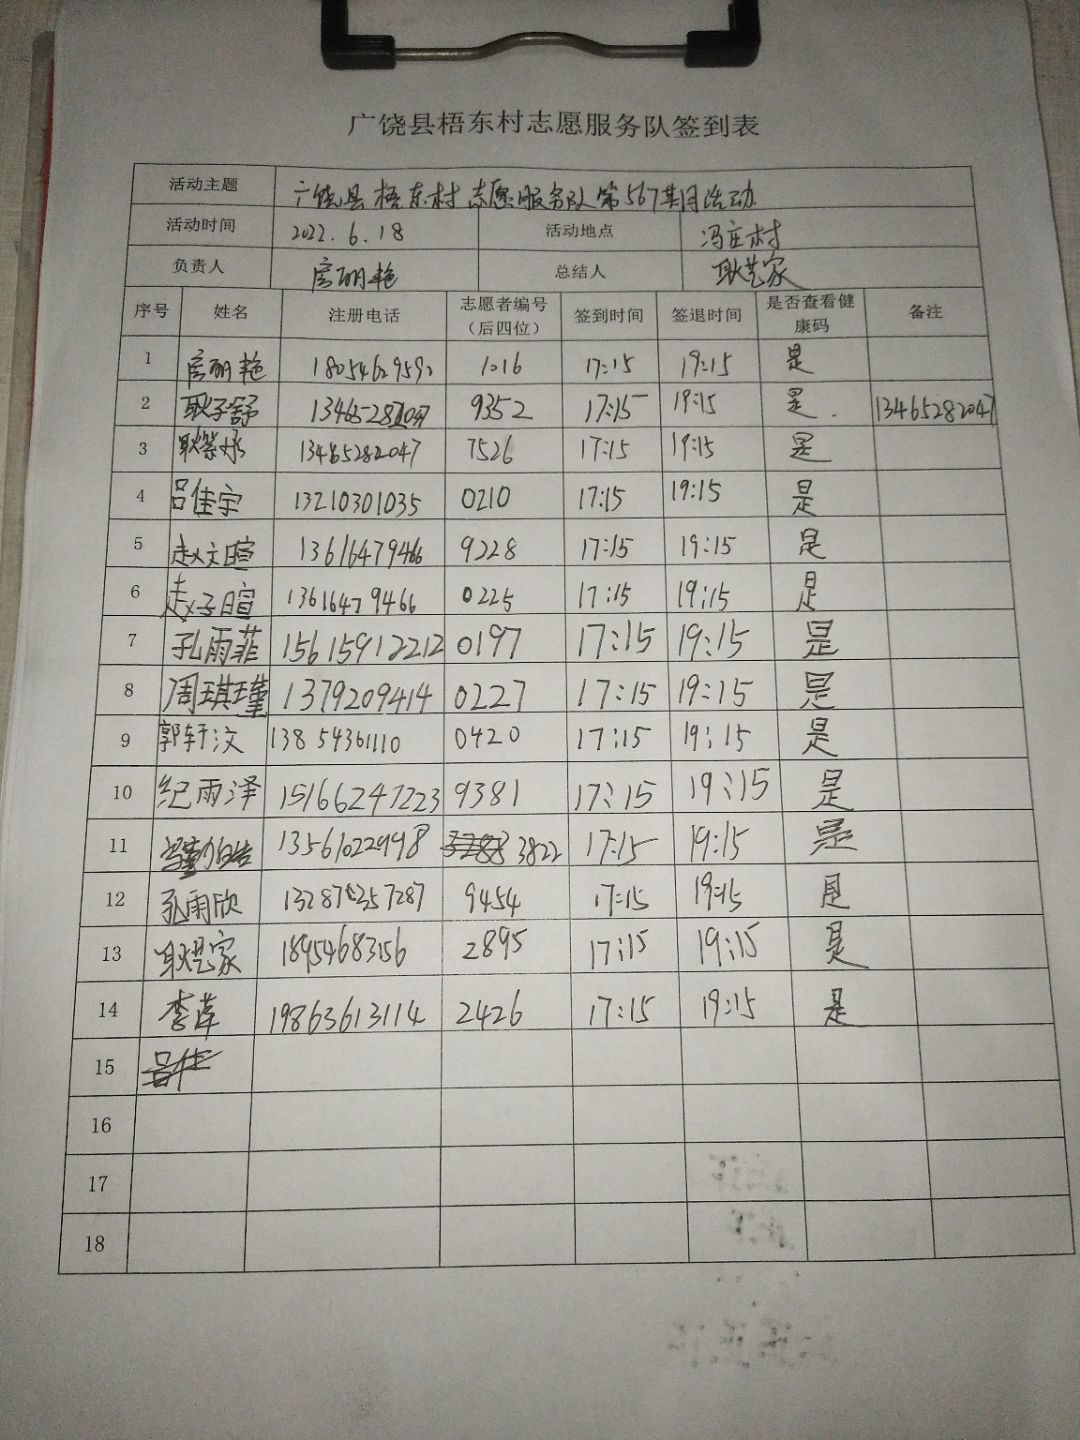 广饶县梧东村志愿服务队签到表
活动主题 广饶县梧东村志愿服务队第567期活动
活动时间 2022.6.18 活动地点 冯庄村
负责人 房丽艳 总结人 耿艺家
序号 姓名 注册电话 志愿者编号（后四位） 签到时间 签退时间 是否查看健康码 备注
1 房丽艳 18054629592 1016 17:15 19:15 是
2 耿子舒 9352 17:15 19:15 是. 13465282047
3 13465282047 7526 17:15 19:15 是
4 吕佳宇 13210301035 0210 17:15 19:15 是
5 赵文暄 13616479466 9228 17:15 19:15 是
6 赵子暄 13616479466 0225 17:15 19:15 是
7 孔雨菲 15615912212 0197 17:15 19:15 是
8 周琪瑾 1379209414 0227 17:15 19:15 是
9 郭轩汶 13854361110 0420 17:15 19:15 是
10 纪雨泽 15166247223 9381 17:15 19:15 是
11 13561022998 3822 17:15 19:15 是
12 孔雨欣 9454 17:15 19:15 是
13 耿艺家 18954683156 2895 17:15 19:15 是
14 李萍 19863613114 2426 17:15 19:15 是
15
16
17
18